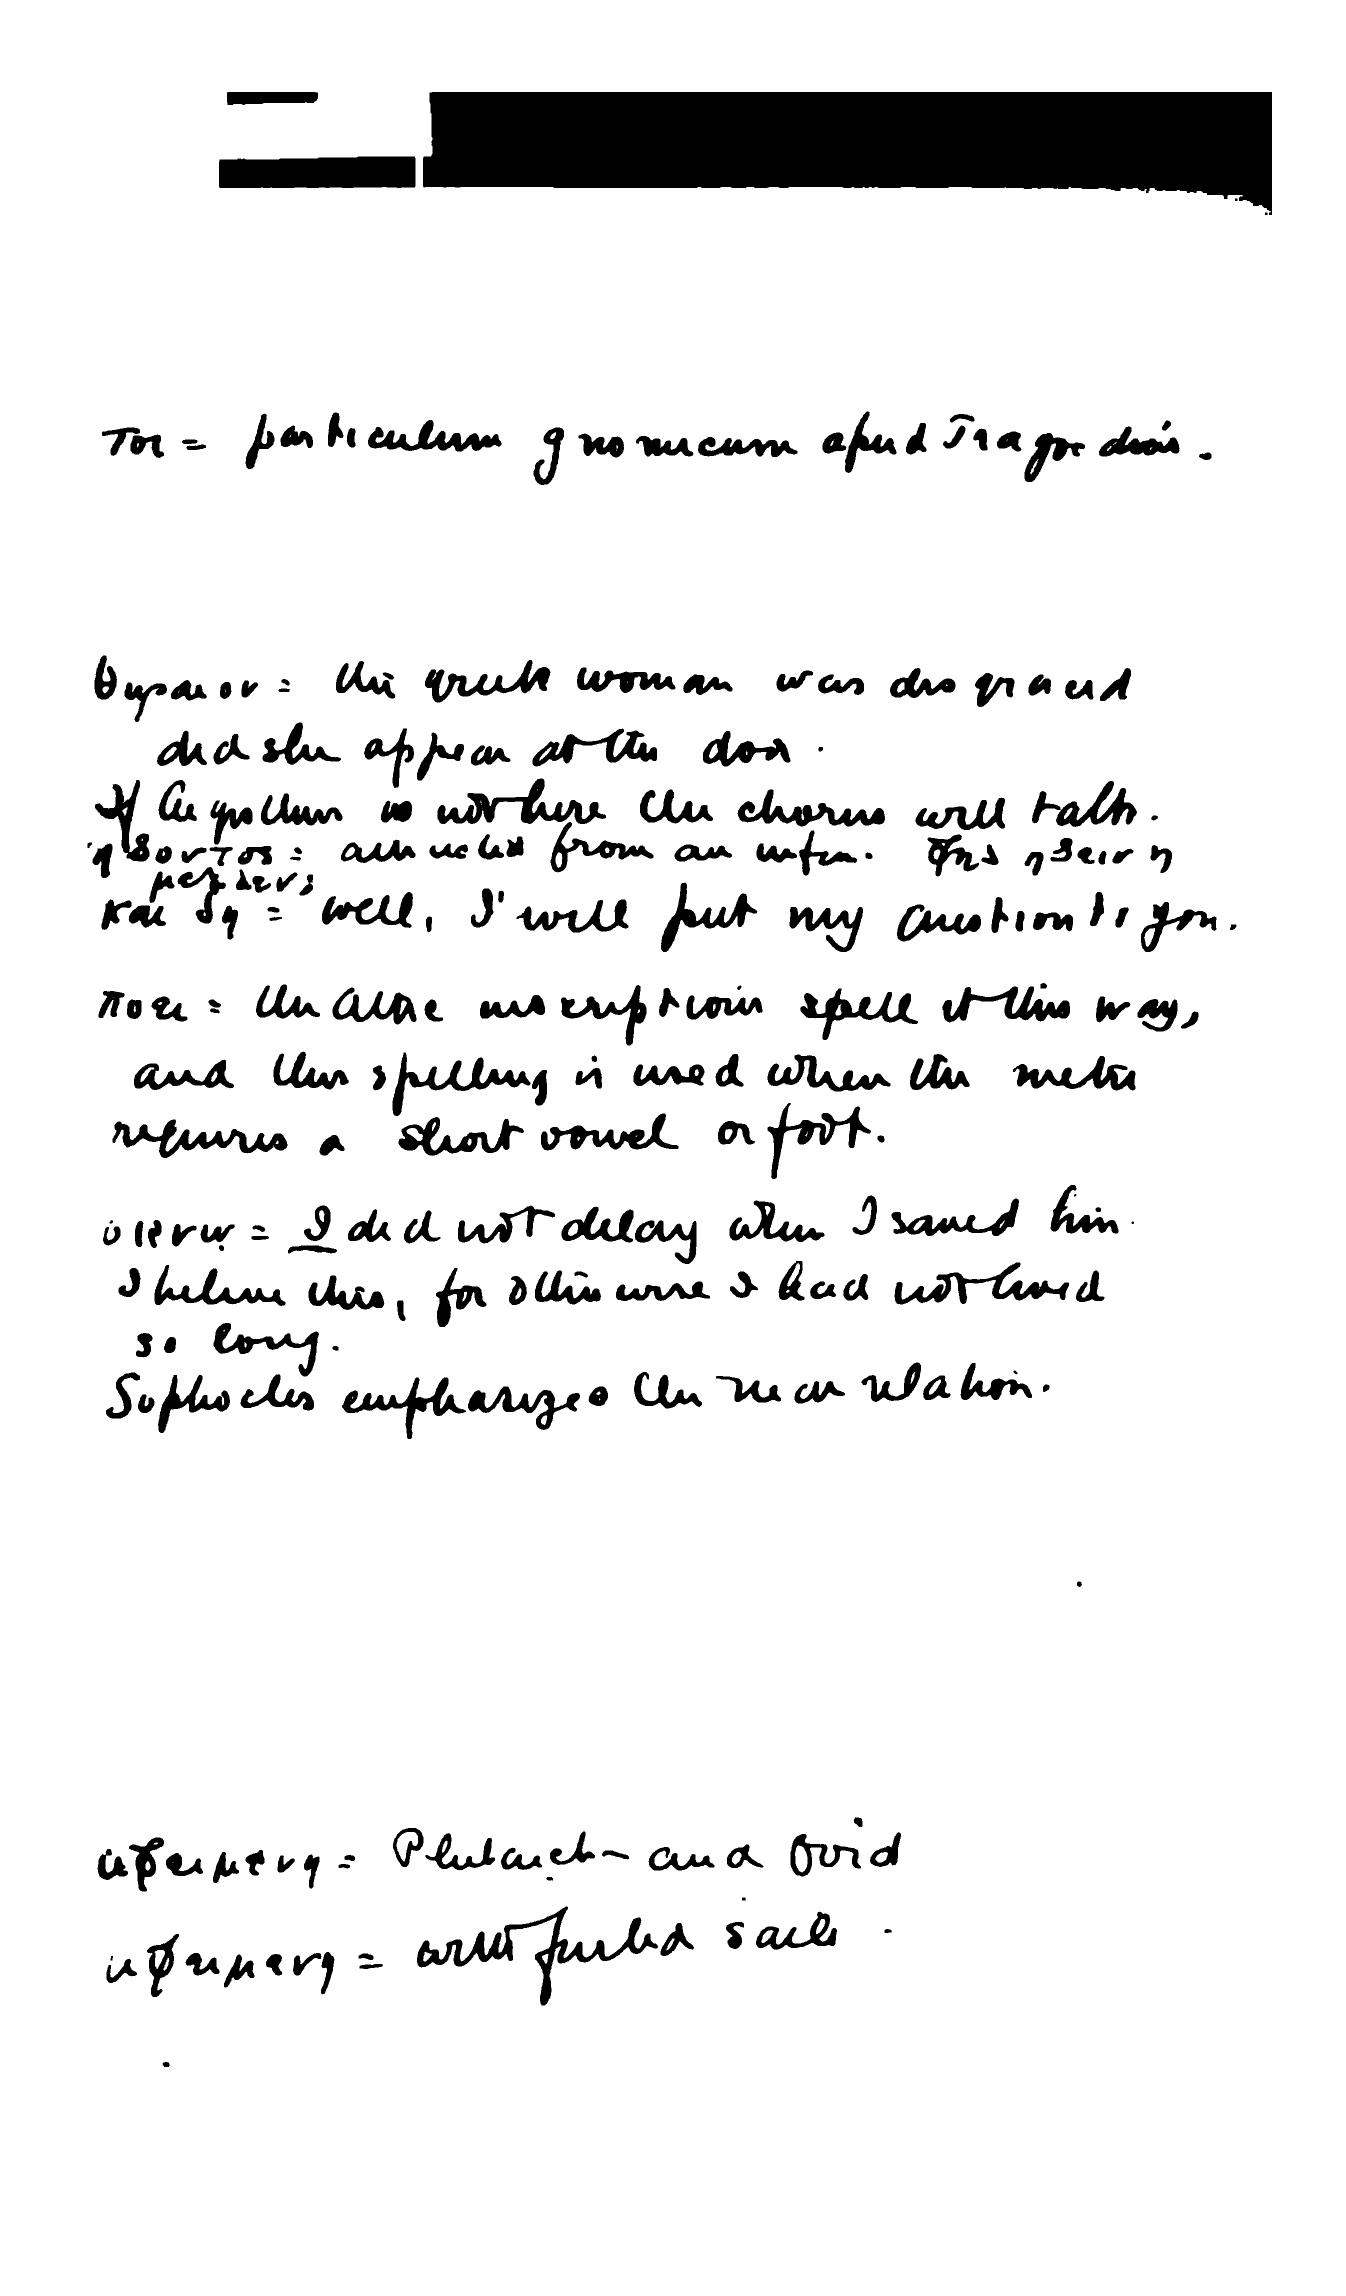 τοι = particulum gnomicum apud Tragoediois.
θυραιον = the greek woman was disgraced
did she appear at the door.
If Aegisthus is not here the chorus will talk.
ηδοντος = from an infin. φης ηδειν η
μελλειν;
και δη = well, I will put my question to you.
ποει = the Attic inscriptions spell it this way,
and this spelling is used when the metre
requires a short vowel or foot.
= I did not delay when I saved him.
I believe this, for otherwise I had not lived
so long.
Sophocles emphasizes the near relation.
υφειμενη = Plutarch - and Ovid
υφειμενη = with furled sails.